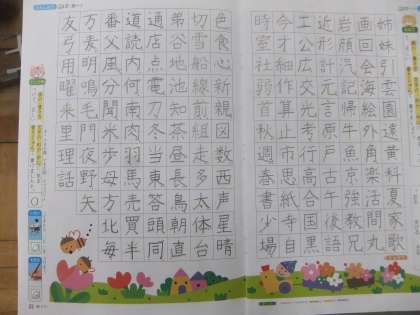 姉妹引雲園遠黄科夏家歌
画回会海絵外角楽活間丸
岩顔汽記帰牛魚京強教兄
近形計元言原戸古午後語
工公広交光考行高合国黒
今才細作算止市思紙寺自
時室社弱首秋週春書少場
色食心新親図数西声星晴
切雪船線前組走多太体台
弟谷地池知茶昼長鳥朝直
通店点電刀冬当東答頭同
道読内何南肉羽馬売買半
番父風分聞米歩母方北毎
万麦明鳴毛門夜野矢
友弓用曜来里理話